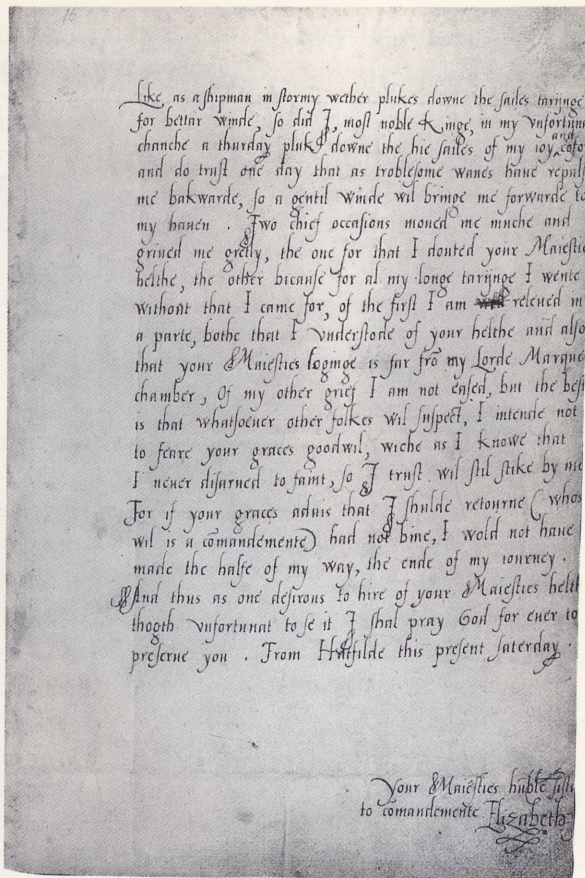 16
Like as a shipman in stormy wether plukes downe the sailes tarijnge
for bettar winde, so did I, most noble Kinge, in my vnfortun
chanche a thurday pluk downe the hie sailes of my ioy and cofo
and do trust one day that as troblesome waues haue repul
me bakwarde, so a gentil winde wil bringe me forwarde to
my hauen . Two chief occasions moued me muche and
griued me gretly, the one for that I douted your Maiestie
helthe, the other bicause for al my longe tarijnge I wente
without that I came for, of the first I am releued in
a parte, bothe that I vnderstode of your helthe and also
that your Maiesties loginge is far frō my Lorde Marque
chamber, Of my other grief I am not eased, but the best
is that whatsoeuer other folkes wil suspect, I intende not
to feare your graces goodwil, wiche as I knowe that
I neuer disarued to faint, so I trust wil stil stike by me
For if your graces aduis that I shulde retourne (whos
wil is a cōmandemente) had not bine, I wold not haue
made the halfe of my way, the ende of my iourney .
And thus as one desirous to hire of your Maiesties helth
thogth vnfortunat to se it I shal pray God for euer to
preserue you . From Hatfilde this present saterday .
Your Maiesties hūble sist
to comandemente Elizabeth